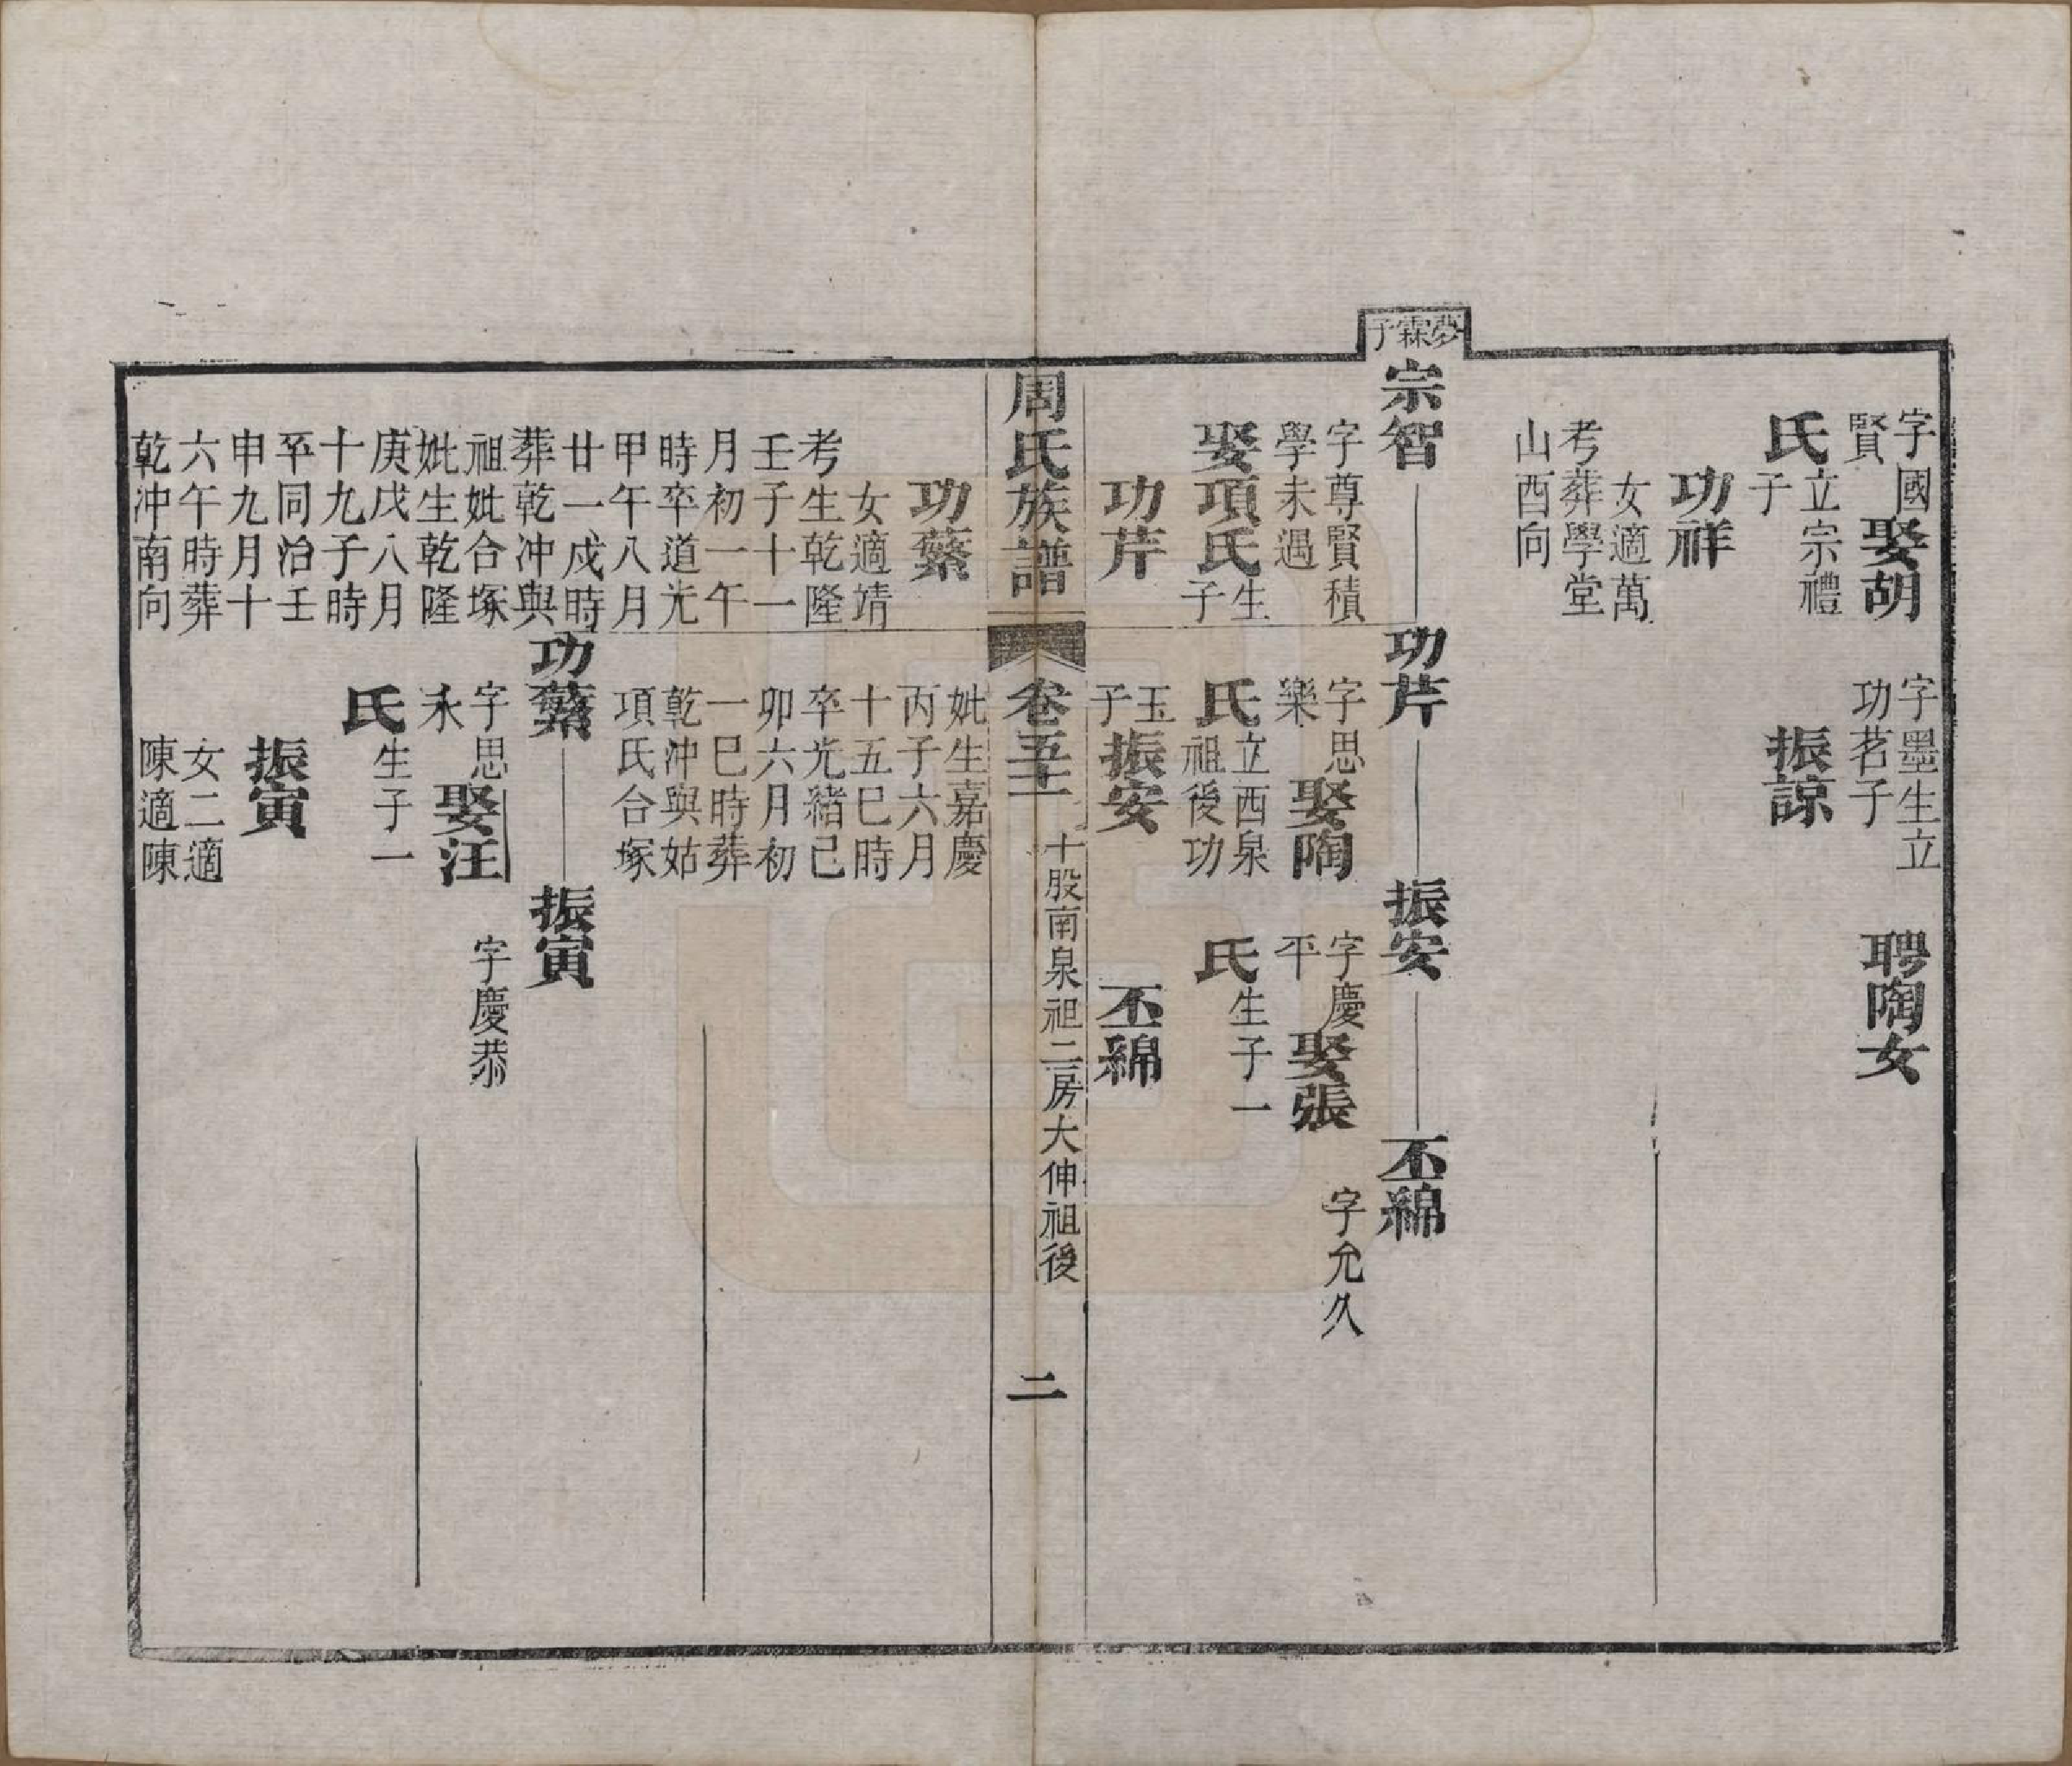 字國賢娶胡
氏立宗禮子
功祥
女適萬
考葬學堂
山酉向
字墨生立
功茗子
振諒
聘陶女
夢霖子
宗智
字尊賢積
學未遇
娶項氏生子
功芹
功芹
字思樂娶陶
氏立西泉祖後功
玉子振安
振安
字慶平娶張
氏生子一
丕綿
丕綿
字允久
周氏族譜
卷五十一
十股南泉祖二房大伸祖後
二
功蘩
女適靖
考生乾隆
壬子十一
月初一午
時卒道光
甲午八月
廿一戌時
葬乾冲與
祖妣合塚
妣生乾隆
庚戌八月
十九子時
卒同治壬
申九月十
六午時葬
乾冲南向
妣生嘉慶
丙子六月
十五巳時
卒光緒己
卯六月初
一巳時葬
乾冲與姑
項氏合塚
功蘩
字思永娶汪
氏生子一
振寅
女二適
陳適陳
振寅
字慶恭